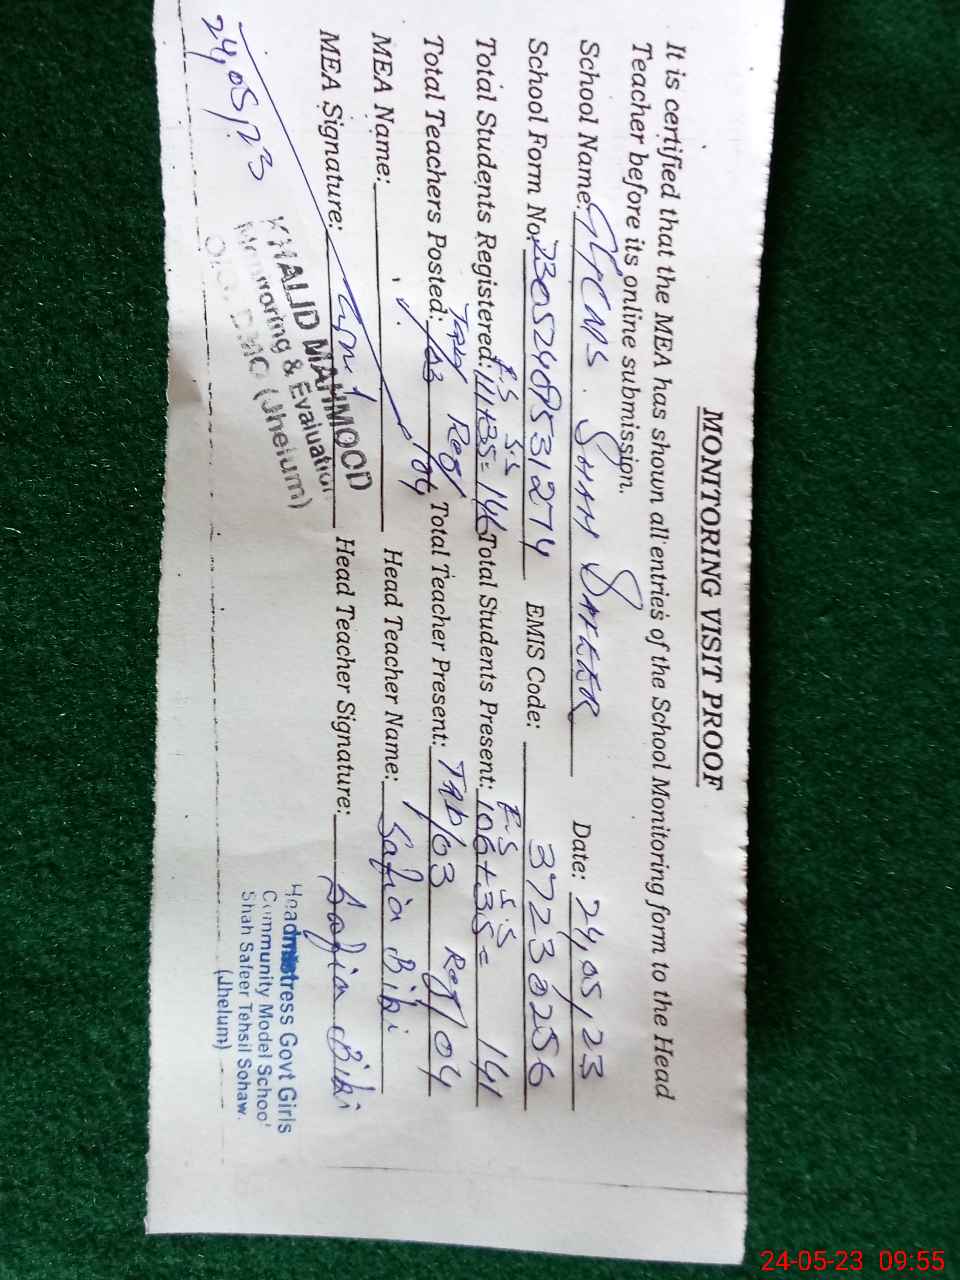 MONITORING VISIT PROOF
It is certified that the MEA has shown all entries of the School Monitoring form to the Head
Teacher before its online submission.
School Name: GGCMS. SHAH SAFEER Date: 24/05/23
School Form No: 23052409531274 EMIS Code: 37230256
E.S S.S E.S S.S
Total Students Registered: 111+35=146 Total Students Present: 106+35= 141
Tab Reg
Total Teachers Posted: /03 /04 Total Teacher Present: Tab/03 Reg/04
MEA Name: Head Teacher Name: Safia Bibi
MEA Signature: Head Teacher Signature: Safia Bibi
24/05/23
KHALID MAHMOOD
Monitoring & Evaluation
O/O. DMO (Jhelum)
Headmistress Govt Girls
Community Model School
Shah Safeer Tehsil Sohawa
(Jhelum)
24-05-23 09:55